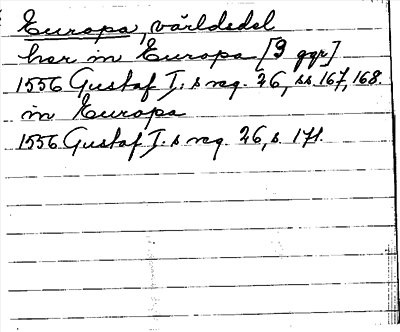 Europa, världsdel
här in Europa [3 ggr]
1556 Gustaf I:s reg. 26, ss. 167, 168.
in Europa
1556 Gustaf I:s reg. 26, s. 171.